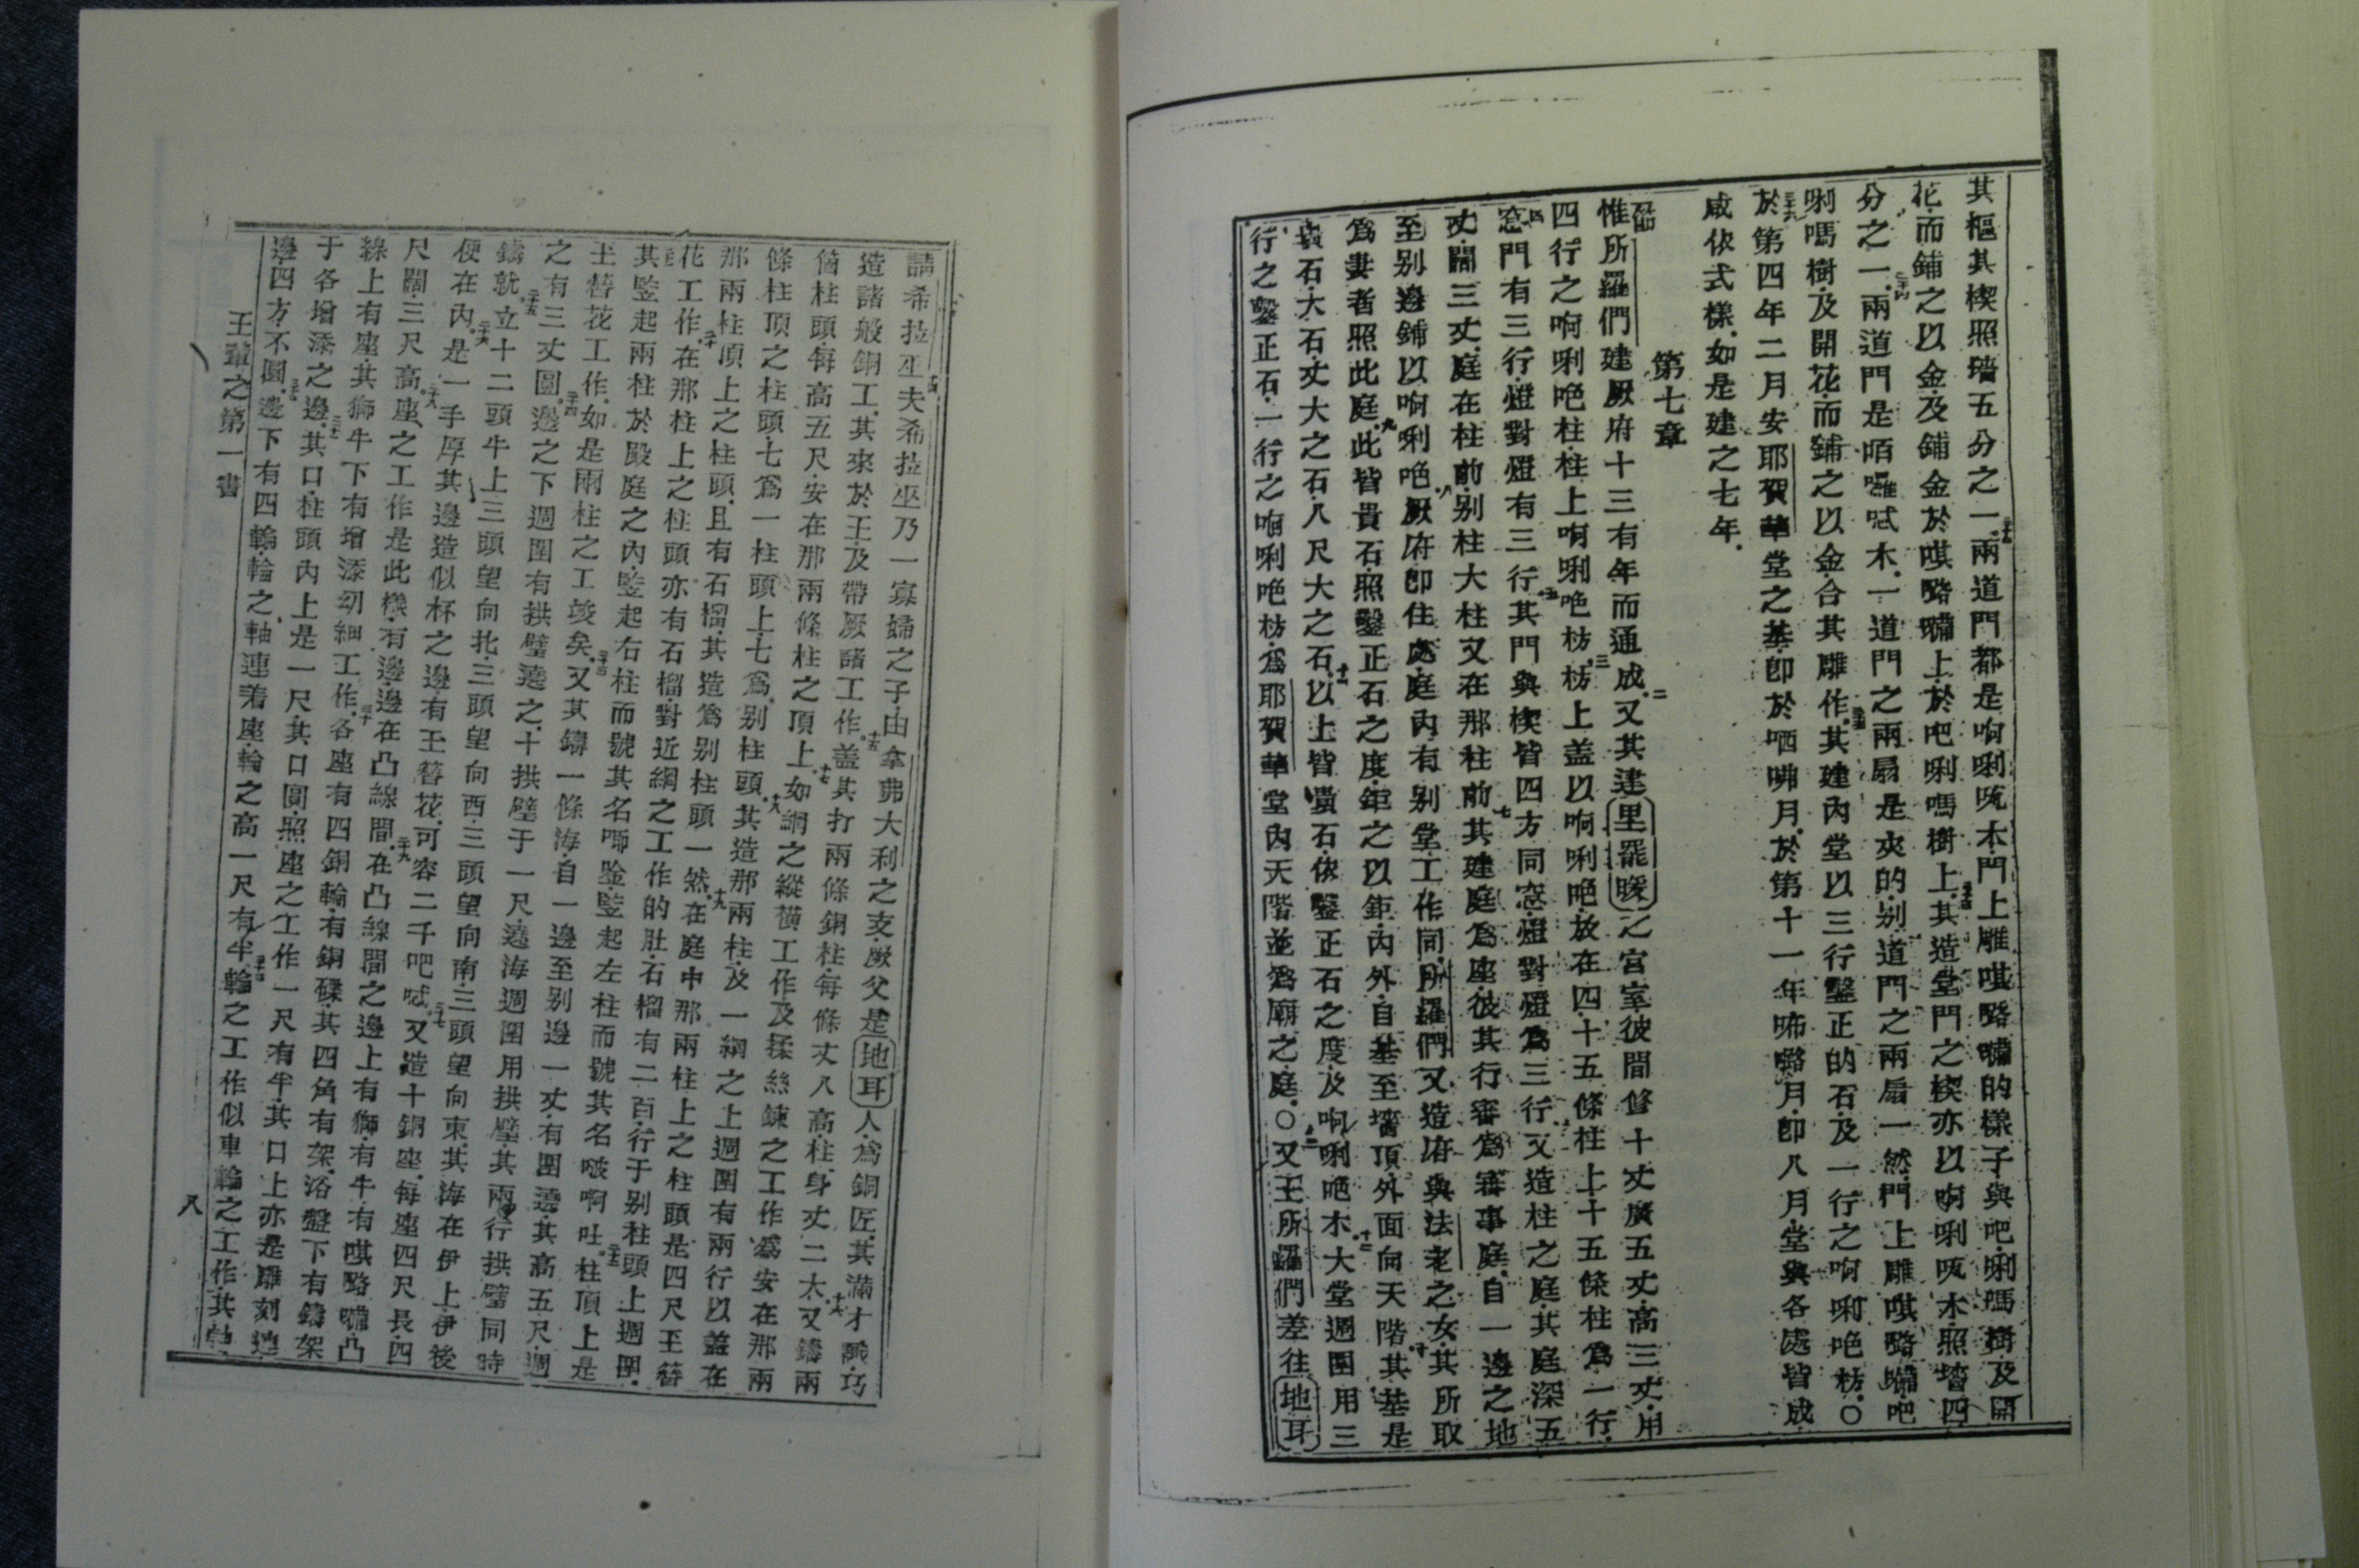 其樞其楔照墻五分之一兩道門都是啊唎𠯈木門上雕唭㗉嘯的樣子與吧唎嗎樹及開
花而鋪之以金及鋪金於唭㗉嘯上於吧唎嗎樹上其造堂門之楔亦以啊唎𠯈木照墻四
分之一兩道門是咟囉㖦木一道門之兩扇是夾的别道門之兩扇一然門上雕唭㗉嘯吧
唎嗎樹及開花而鋪之以金合其雕作其建內堂以三行鑿正的石及一行之啊唎𠳭枋○
於第四年二月安耶賀華堂之基卽於哂咈月於第十一年咘嚕月卽八月堂與各處皆成
咸依式樣如是建之七年
第七章
惟所羅們建厥府十三有年而通成又其建里罷暖之宮室彼間修十丈廣五丈高三丈用
四行之啊唎𠳭柱柱上啊唎𠳭枋枋上盖以啊唎𠳭放在四十五條柱上十五條柱爲一行
窓門有三行燈對燈有三行其門與楔皆四方同窓燈對燈爲三行又造柱之庭其庭深五
丈闊三丈庭在柱前别柱大柱又在那柱前其建庭爲座彼其行審爲審事庭自一邊之地
至别邊鋪以啊唎𠳭厥府卽住處庭內有别堂工作同所羅們又造府與法老之女其所取
爲妻者照此庭此皆貴石照鑿正石之度鉅之以鉅內外自基至墻頂外面向天階其基是
貴石大石丈大之石八尺大之石以上皆貴石依鑿正石之度及啊唎𠳭木大堂週圍用三
行之鑿正石一行之啊唎𠳭枋爲耶賀華堂內天階並爲廟之庭○又王所羅們差往地耳
請希拉巫夫希拉巫乃一寡婦之子由拿弗大利之支厥父是地耳人爲銅匠其滿才識巧
造諸般銅工其來於王及帶厥諸工作盖其打兩條銅柱每條丈八高柱身丈二大又鑄兩
箇柱頭每高五尺安在那兩條柱之頂上如網之縱橫工作及揉絲鍊之工作爲安在那兩
條柱頂之柱頭七爲一柱頭上七爲别柱頭其造那兩柱及一網之上週圍有兩行以盖在
那兩柱頂上之柱頭且有石榴其造爲别柱頭一然在庭中那兩柱上之柱頭是四尺玉簪
花工作在那柱上之柱頭亦有石榴對近網之工作的肚石榴有二百行于别柱頭上週圍
其竪起兩柱於殿庭之內竪起右柱而號其名唧唫竪起左柱而號其名啵啊吐柱頂上是
玉簪花工作如是兩柱之工竣矣又其鑄一條海自一邊至别邊一丈有圍遶其高五尺週
之有三丈圓邊之下週圍有拱璧遶之十拱璧于一尺遶海週圍用拱璧其兩行拱璧同時
鑄就立十二頭牛上三頭望向北三頭望向西三頭望向南三頭望向東其海在伊上伊後
便在內是一手厚其邊造似杯之邊有玉簪花可容二千吧㖦又造十銅座每座四尺長四
尺闊三尺高座之工作是此樣有邊邊在凸線間在凸線間之邊上有獅有牛有唭㗉嘯凸
線上有座其獅牛下有增添幼細工作各座有四銅輪有銅磔其四角有架浴盤下有鑄架
于各增添之邊其口柱頭內上是一尺其口圓照座之工作一尺有半其口上亦是雕刻邊
邊四方不圓邊下有四輪輪之軸連着座輪之高一尺有半輪之工作似車輪之工作其
王輩之第一書
八